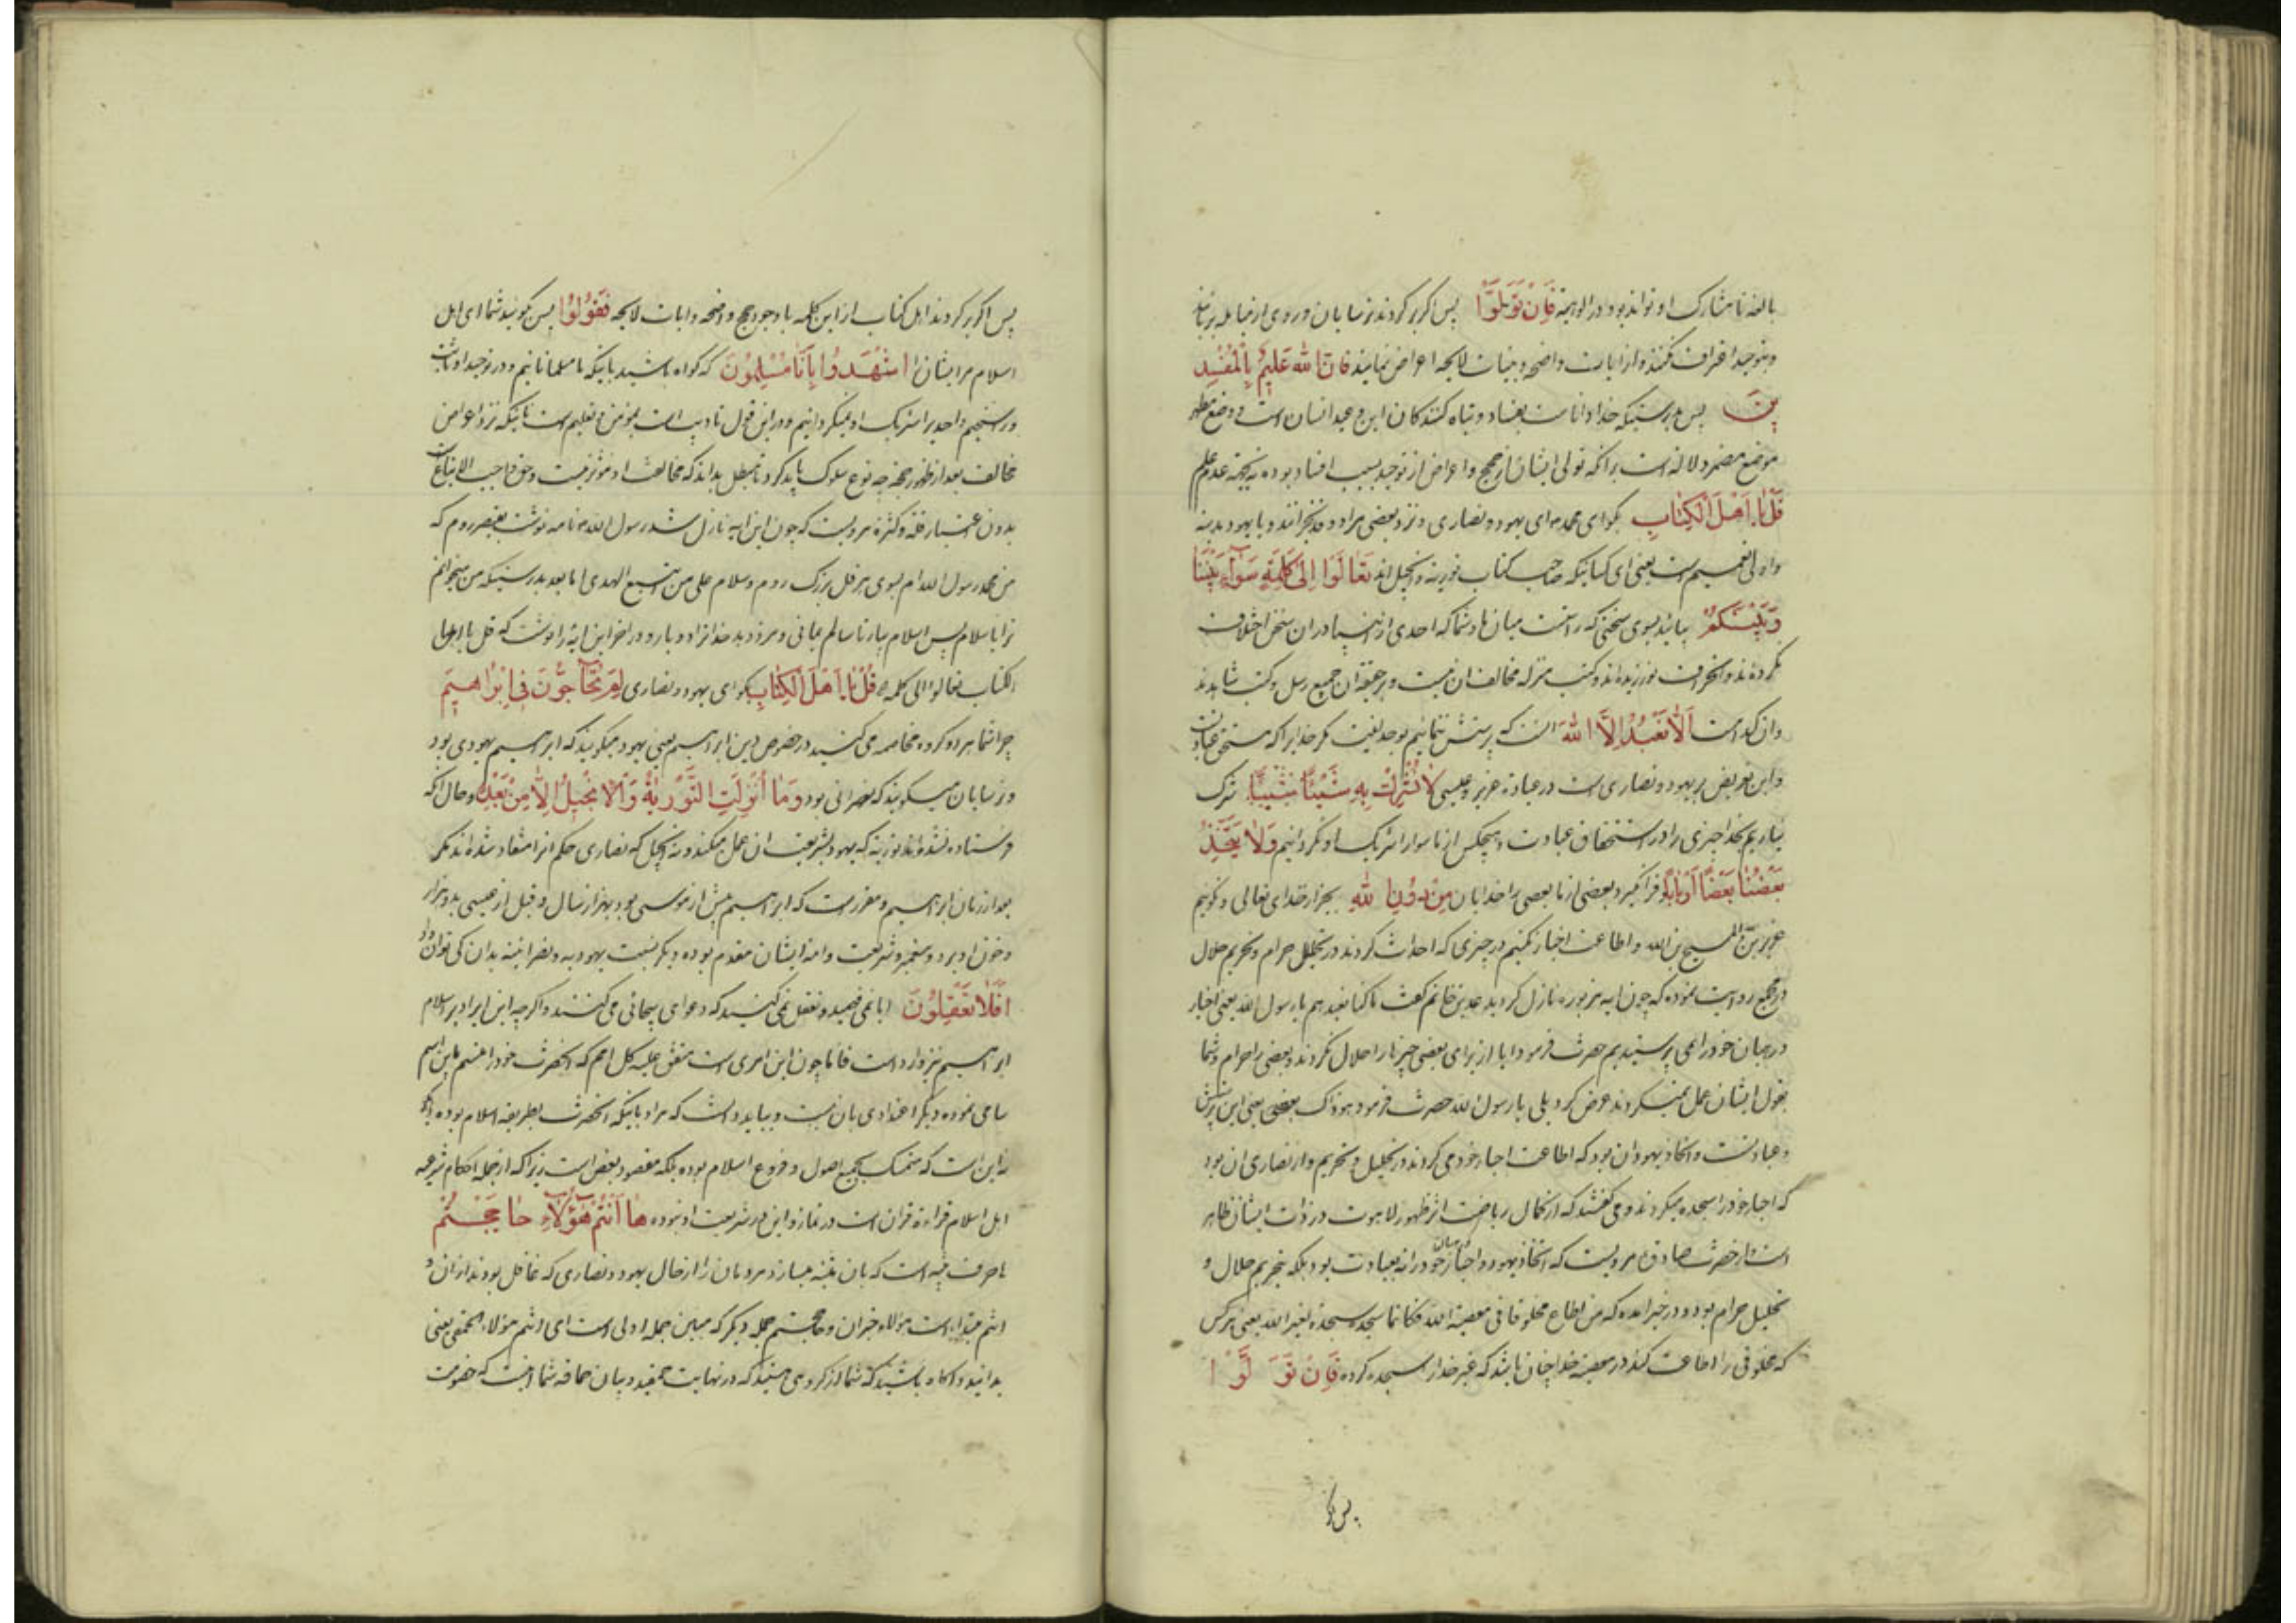 بالغه تا مشارک او تواند بود در الوهیة فَاِنْ تَوَلَّوْا پس اگر برکردند ترسایان و روی از مباهله برتابند
و بتوحید اعتراف نکنند و از ایات واضحه و بینات لایحه اعراض نمایند فَاِنَّ اللهَ عَلیمٌ بِالْمُفْسِدِ
ینَ پس بدرستیکه خدا داناست بفساد و تباه کنندکان این و عید انسان است و وضع مظهر
موضع مضمر دلاله است برانکه تولی ایشان از حجج و اعراض از توحید بسبب افساد بوده نه بجهة عدم علم
قُلْ یٰا اَهْلَ الْکِتٰابِ بکو ای محمد ای یهود و نصاری و نزد بعضی مراد وفد نجرانند و یا یهود مدینه
و اولی تعمیم است یعنی ای کسانیکه صاحب کتاب توریة و انجیل اند تَعٰالَوْا اِلیٰ کَلِمَةٍ سَوٰآءٍ بَیْنَنٰا
وَبَیْنَکُمْ بیائید بسوی سخنی که راست میان ما و شما که احدی از انبیا در ان سخن اختلاف
نکرده‌اند و انحراف نورزیده‌اند و کتب منزله مخالف ان نیست و بر حقیقة ان جمیع رسل و کتب شاهدند
و ان کدامست اَلّٰا نَعْبُدَ اِلَّا اللهَ انست که پرستش ننمائیم بوحدانیت مکر خدایرا که مستحق عبادتست
و این تعریض بر یهود و نصاری است در عبادة عزیر و عیسی لٰا نُشْرِکَ بِهِ شَیْئًا شَیْئًا شرک
نیاریم بخدا چیزی را در استحقاق عبادت و هیچکس از ماسوا را شریک او نکردانیم وَلٰا یَتَّخِذَ
بَعْضُنٰا بَعْضًا اَرْبٰابًا و فرا نکیرد بعضی از ما بعضی را خدایان مِنْ دُونِ اللهِ بجز از خدای تعالی و نکوئیم
عزیر بن الله المسیح بن الله و اطاعت احبار نکنیم در چیزی که احداث کردند در تحلیل حرام و تحریم حلال
در مجمع روایت نموده که چون ایه مزبوره نازل کردید عدی بن حاتم کفت ما کنا نعبدهم یا رسول الله یعنی احبار
و رهبان خود را نمی پرستیدیم حضرت فرمود ایا از برای بعضی چیزها را حلال نکردند و بعضی را حرام و شما
بقول ایشان عمل نمیکردند عرض کرد بلی یا رسول الله حضرت فرمود هو ذاک یعنی این پرستش
و عبادتست و اتخاذ یهود ان بود که اطاعت احبار خود می کردند در تحلیل و تحریم و از نصاری ان بود
که احبار خود را سجده میکردند و می کفتند که از کمال ریاضت اثر ظهور لاهوت در ذات ایشان ظاهر
است از حضرت صادق مرویست که اتخاذ یهود احبار و رهبان خود را نه بعبادت بود بلکه بتحریم حلال و
تحلیل حرام بود و در خبر امده که من اطاع مخلوقا فی معصیة الله فکانما سجد سجدة لغیر الله یعنی هر کس
که مخلوقی را اطاعت کند در معصیة خدا چنان باشد که غیر خدا را سجده کرده فَاِنْ تَوَلَّوْا
پس اکر
پس اکر برکردند اهل کتاب از این کلمه با وجود حجج واضحه و ایات لایحه فَقُولُوا پس بکوئید شما ای اهل
اسلام مر ایشانرا اشْهَدُوا بِاَنّٰا مُسْلِمُونَ که کواه باشید باینکه ما مسلمانانیم و در توحید او ثابت
و راسخیم و احدیرا شریک او نمیکردانیم و در این قول تادیب است بمؤمن و تعلیم است باینکه نزد اعراض
مخالف بعد از ظهور حجة چه نوع سلوک باید کرد تا مبطل بداند که مخالفت او مؤثر نیست و حق واجب الاتباعست
بدون اعتبار قلة و کثرة مرویست که چون این ایه نازل شد رسول الله نامه نوشت بقیصر روم که
من محمد رسول الله ام بسوی هرقل بزرک روم و سلام علی من اتبع الهدی اما بعد بدرستیکه من میخوانم
ترا باسلام پس اسلام بیار تا سالم بمانی و مزد دهد خدا ترا دو بار و در اخر این ایه را نوشت که قل یا اهل
الکتاب تعالوا الی کلمه قُلْ یٰا اَهْلَ الْکِتٰابِ بکو ای یهود و نصاری لِمَ تُحٰآجُّونَ فی اِبْرٰاهیمَ
چرا شما هر دو کروه مخاصمه می کنید در خصوص دین ابراهیم یعنی یهود میکویند که ابراهیم یهودی بود
و ترسایان میکویند که نصرانی بود وَمٰا اُنْزِلَتِ التَّوْرٰیةُ وَالْاِنْجیلُ اِلّٰا مِنْ بَعْدِهِ و حال انکه
فرستاده نشده‌اند توریة که یهود بشریعت ان عمل میکند و نه انجیل که نصاری حکم انرا منقاد شده‌اند مکر
بعد از زمان ابراهیم و مقرر است که ابراهیم پیش از موسی بود بهزار سال و قبل از عیسی بدو هزار
و چون او بر دو پیغمبر و شریعت و امة ایشان مقدم بوده دیکر نسبت یهودیه و نصرانیة بدان کی توان داد
اَفَلٰا تَعْقِلُونَ ایا نمی فهمید و تعقل نمی کنید که دعوای بیجائی می کنند و اکر چه این ایراد بر اسلام
ابراهیم نیز وارد است فاما چون این امری است متفق علیه کل امم که انحضرت خود را مسمی باین اسم
سامی نموده دیکر اعتدادی بان نیست و بباید دانست که مراد باینکه انحضرت بطریقه اسلام بوده
نه این است که متمسک بجمیع اصول و فروع اسلام بوده بلکه مقصود بعض است زیرا که از جمله احکام شرعیه
اهل اسلام قراءة قران است در نماز و این در شریعت او نبوده هٰا اَنْتُمْ هٰؤُلٰآءِ حٰاجَجْتُمْ
ها حرف تنبیه است که بان متنبه میسازد مردمان را از حال یهود و نصاری که غافل بودند از ان و
انتم مبتداست هؤلاء خبر ان و حاججتم جمله دیکر که مبین جمله اولی است ای انتم هؤلاء الحمقی یعنی
بدانید و اکاه باشید که شما انکروهی هستید که در نهایت حمقید و بیان حماقة شما انست که خصومت